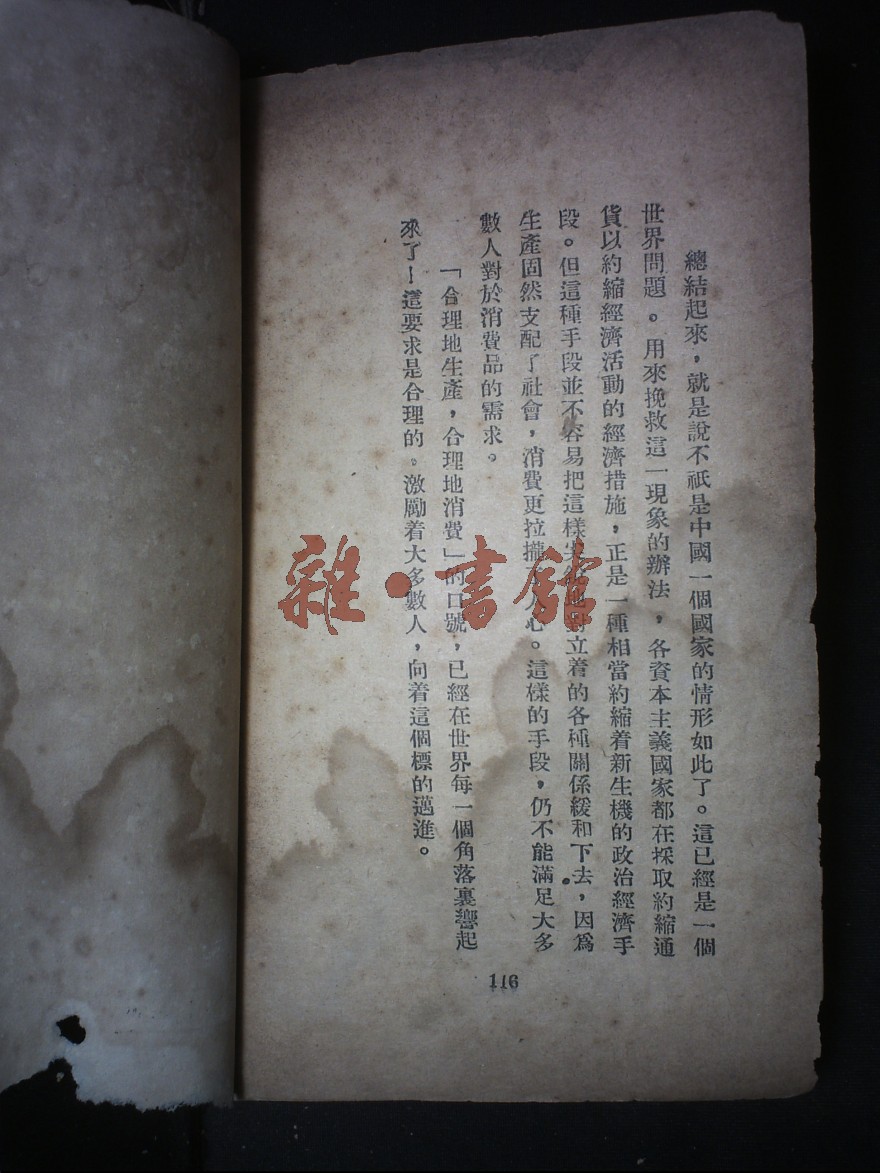 總結起來，就是說不祇是中國一個國家的情形如此了。這已經是一個
世界問題。用來挽救這一現象的辦法，各資本主義國家都在採取約縮通
貨以約縮經濟活動的經濟措施，正是一種相當約縮着新生機的政治經濟手
段。但這種手段並不容易把這樣地對立着的各種關係緩和下去，因爲
生產固然支配了社會，消費更拉攏了人心。這樣的手段，仍不能滿足大多
數人對於消費品的需求。
「合理地生產，合理地消費」的口號，已經在世界每一個角落裏響起
來了！這要求是合理的。激勵着大多數人，向着這個標的邁進。
116
雜·書館